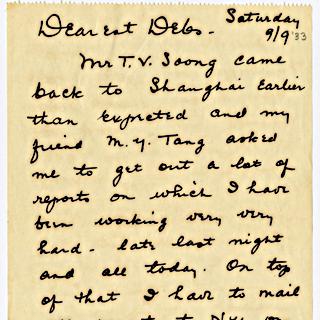 Dearest Debs. Saturday
9/9 '33
Mr T. V. Soong came
back to Shanghai earlier
than expected and my
friend M. Y. Tang asked
me to get out a lot of
reports on which I have
been working very very
hard - late last night
and all today. On top
of that I have to mail